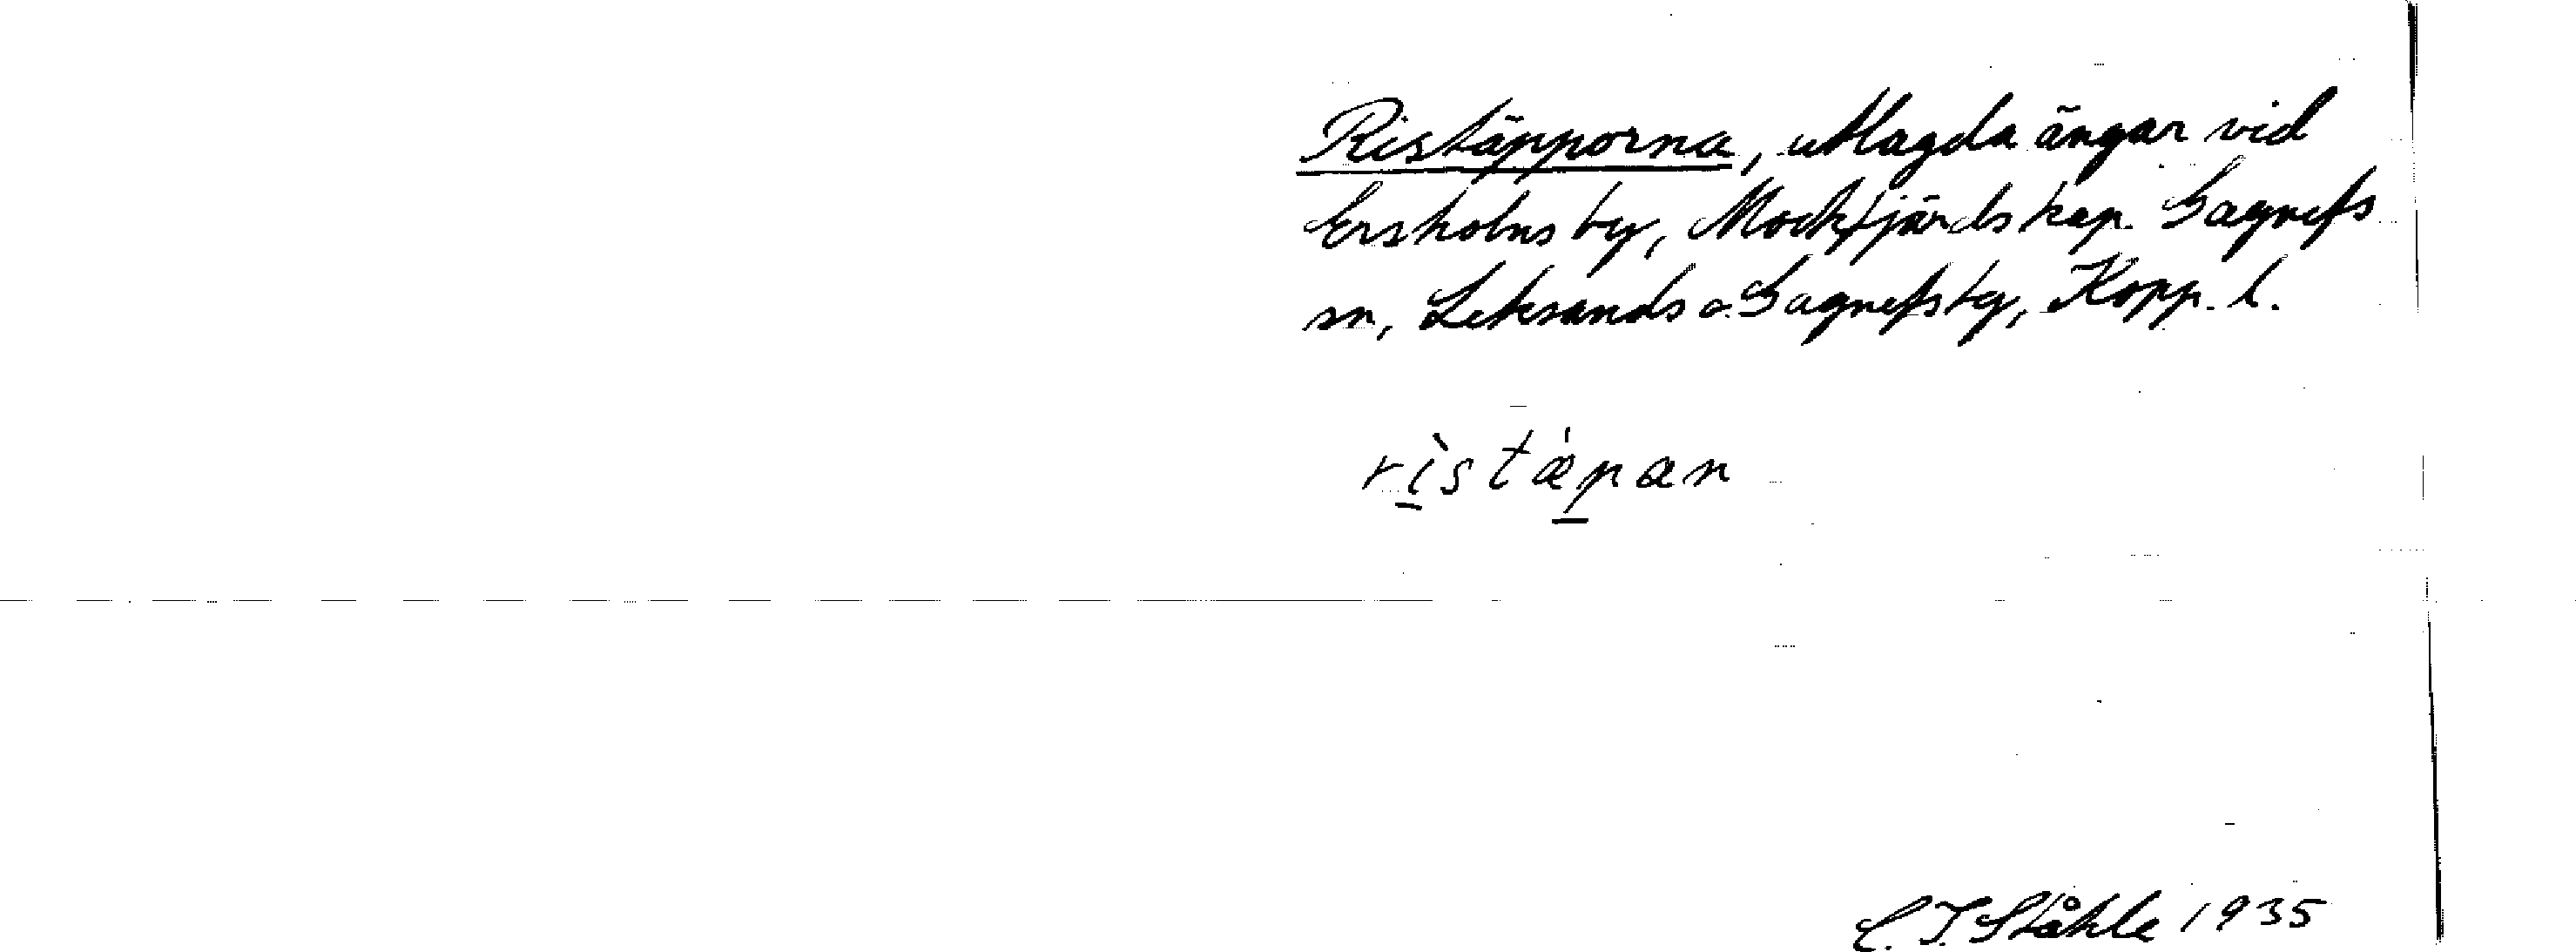 Ristäpporna, utlagda ängar vid
Ersholns by, Mockfjärds kap. Gagnefs
sn, Leksands o. Gagnefs tg, Kopp. l.
rìstǽpan
C. I. Ståhle 1935